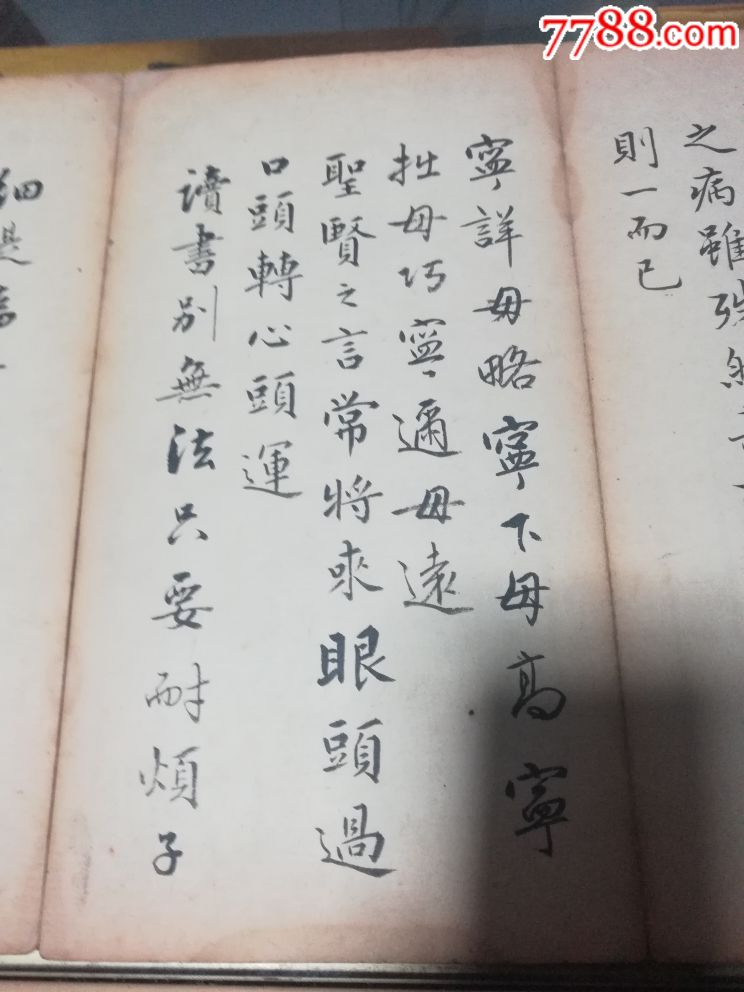 7788.com
之病雖殊然
則一而已
寧詳毋略寧下毋高寧
拙毋巧寧邇毋遠
聖賢之言常將來眼頭過
口頭轉心頭運
讀書别無法只要耐煩子
細是